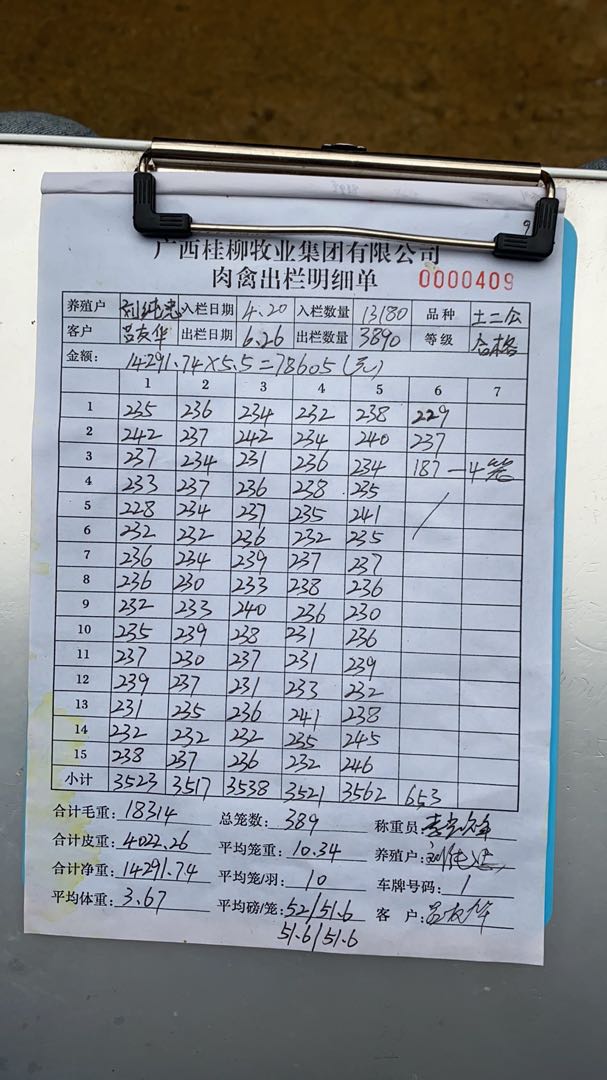 广西桂柳牧业集团有限公司
肉禽出栏明细单 0000409
养殖户 刘纯忠 入栏日期 4.20 入栏数量 13180 品种 土二公
客户 吕友华 出栏日期 6.26 出栏数量 3890 等级 合格
金额: 14291.74×5.5=78605(元)
1 2 3 4 5 6 7
1 235 236 234 232 238 229
2 242 237 242 234 240 237
3 237 234 231 236 234 187 — 4笼
4 233 237 236 238 235
5 228 234 237 235 241
6 232 232 236 232 235
7 236 234 239 237 237
8 236 230 233 238 236
9 232 233 240 236 230
10 235 239 238 231 236
11 237 230 237 231 239
12 239 237 231 233 232
13 231 235 236 241 238
14 232 232 232 235 245
15 238 237 236 232 246
小计 3523 3517 3538 3521 3562 653
合计毛重: 18314 总笼数: 389 称重员:
合计皮重: 4022.26 平均笼重: 10.34 养殖户:
合计净重: 14291.74 平均笼/羽: 10 车牌号码: 1
平均体重: 3.67 平均磅/笼: 52/51.6 客 户: 吕友华
51.6/51.6